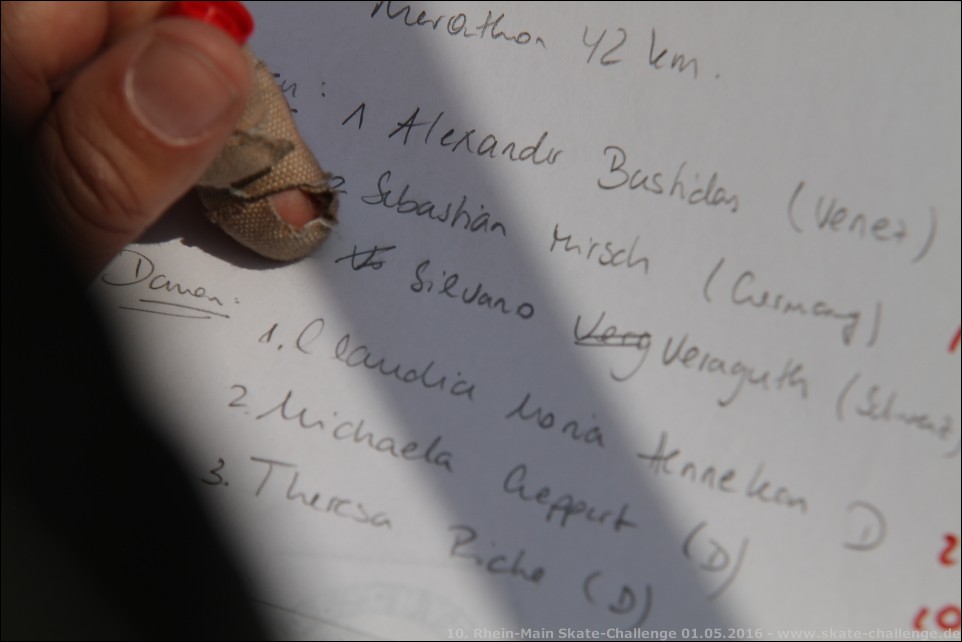 Marathon 42 km.
en:
1 Alexander Bastidas (Venez)
2 Sebastian Mirsch (Germany)
Silvano Verg Veraguth (Schweiz)
Damen:
1. Claudia Maria Henneken D
2. Michaela Geppert (D)
3. Theresa Riche (D)
10. Rhein-Main Skate-Challenge 01.05.2016 - www.skate-challenge.de